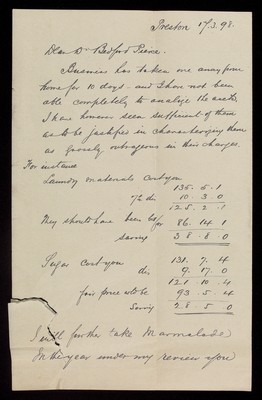 Preston 17.3.98.
Dear Dr Bedford Pierce.
Business has taken me away from
home for 10 days. and I have not been
able completely to analize the assets,
I have however seen sufficient of them
as to be justified in characterizing them
as grossly outrageous in their charges.
For instance
Laundry materials cost you
135. 5. 1
7½ dis 10. 3 0
125. 2. 1
They should have been bo't for 86. 14 1
saving 38. 8 0
Sugar cost you 131. 7. 4
dis 9. 17. 0
121 10. 4
fair price wd be 93. 5. 4
Saving 28. 5. 0
I will further take Marmalade
In the year under my review you